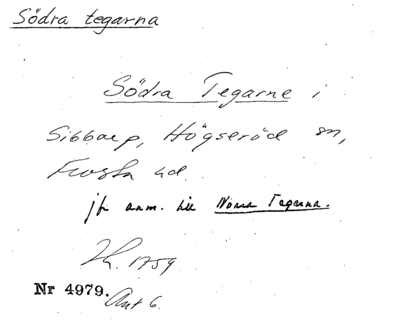 Södra tegarna
Södra Tegarne i
Sibbarp, Högseröd sn,
Frosta hd.
jfr anm. till Norra Tegarna.
1759
Nr 4979.
Akt 6.